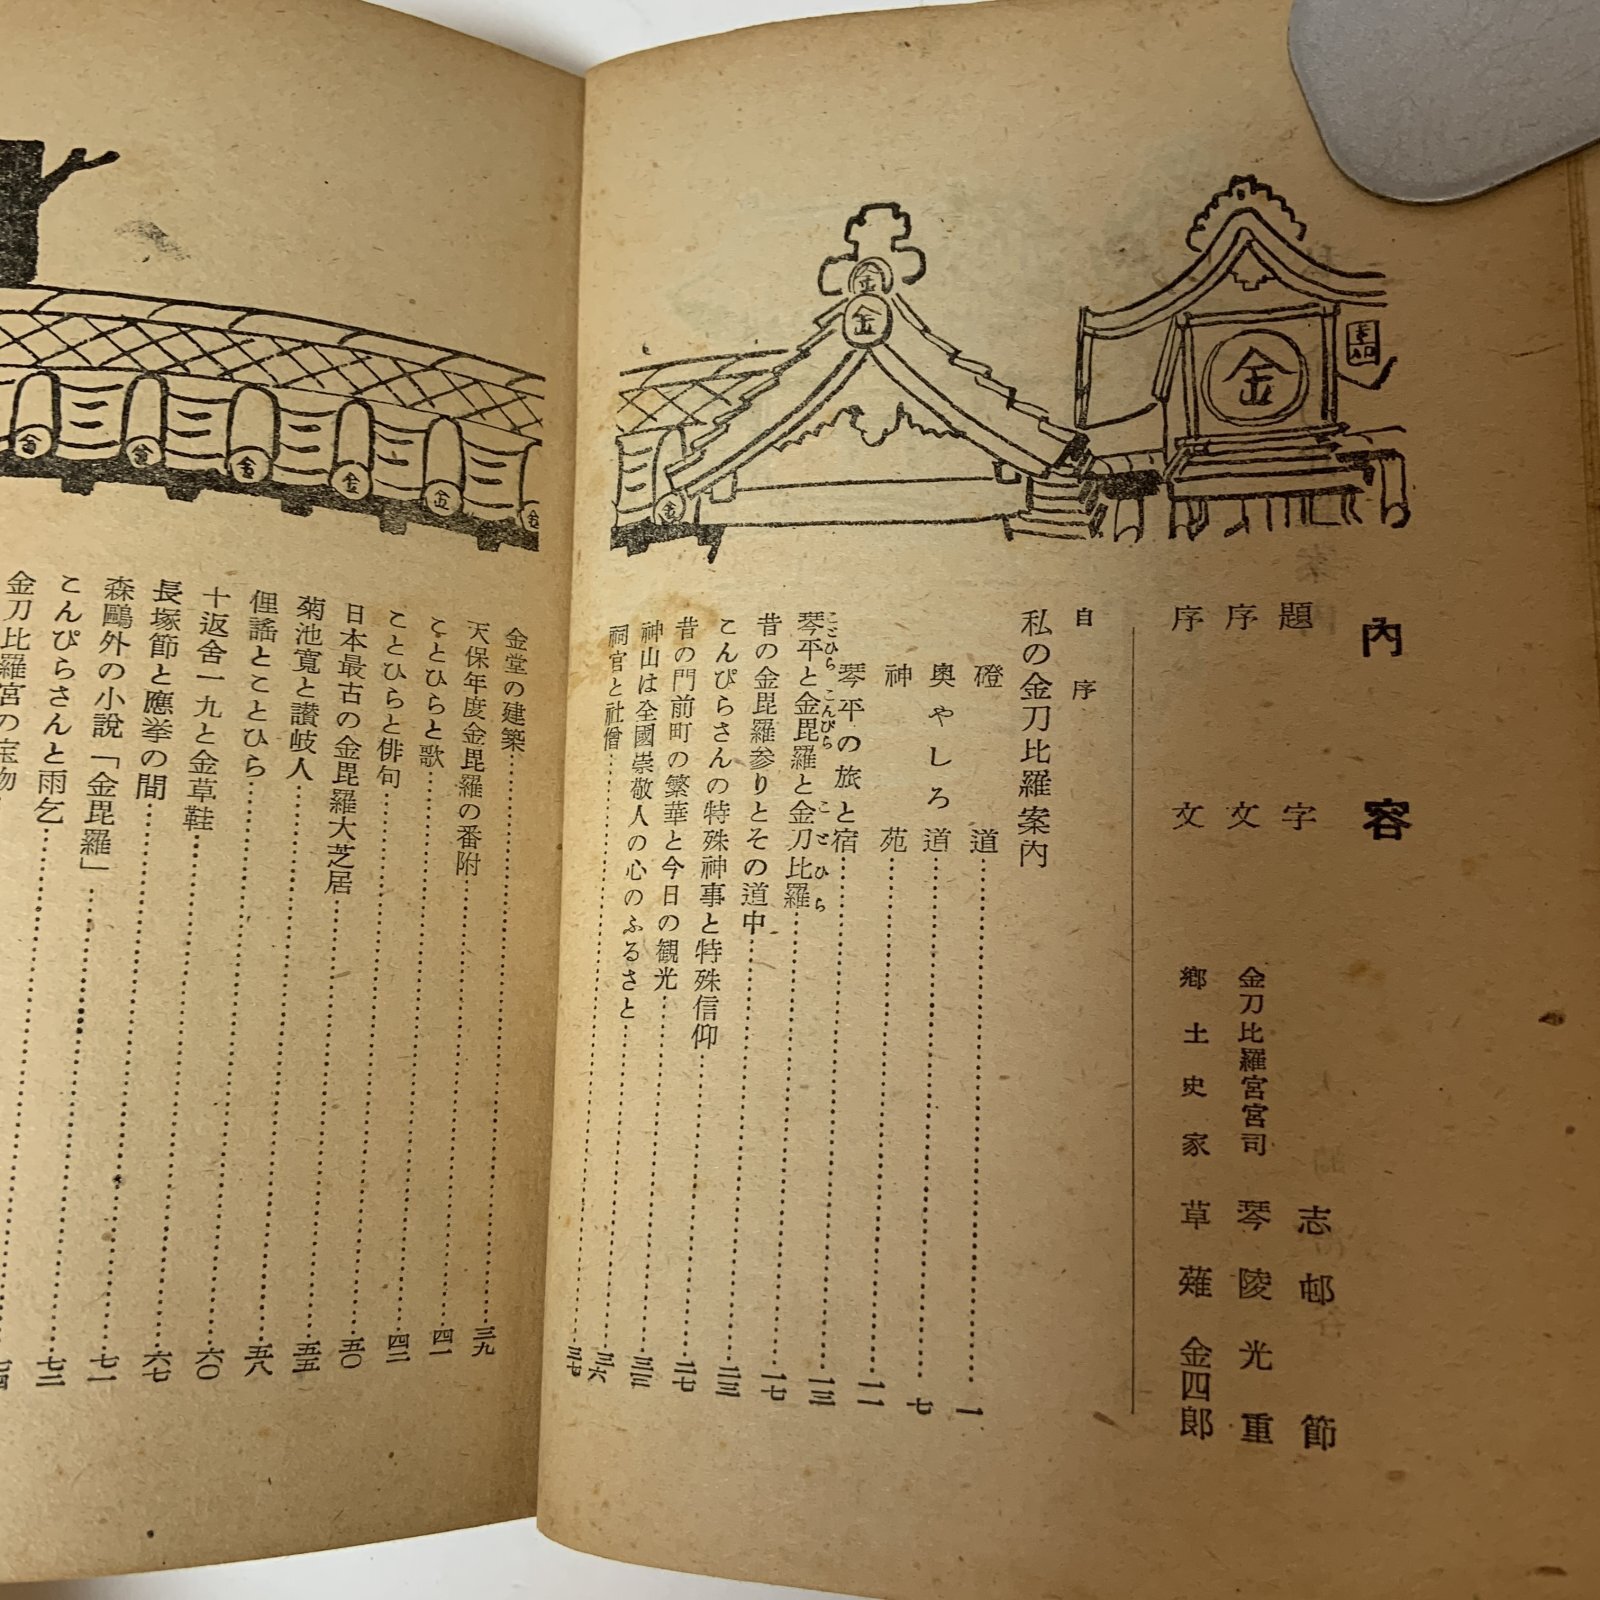 內容
題字 志邨節
序文 金刀比羅宮宮司 琴陵光重
序文 鄕土史家 草薙金四郎
自序
私の金刀比羅案內
磴道……一
奧やしろ道……七
神苑……一一
琴平の旅と宿……一三
琴平と金毘羅と金刀比羅……一七
ことひら こんぴら ことひら
昔の金毘羅参りとその道中……二三
こんぴらさんの特殊神事と特殊信仰……二七
昔の門前町の繁華と今日の観光……三三
神山は全國崇敬人の心のふるさと……三六
祠官と社僧……三七
金堂の建築……三九
天保年度金毘羅の番附……四一
ことひらと歌……四二
ことひらと俳句……五〇
日本最古の金毘羅大芝居……五五
菊池寬と讃岐人……五八
俚謠とことひら……六〇
十返舍一九と金草鞋……六七
長塚節と應挙の間……七一
森鷗外の小說「金毘羅」……七二
こんぴらさんと雨乞
金刀比羅宮の宝物
金
金
金
金
金
金
金
金
金
金